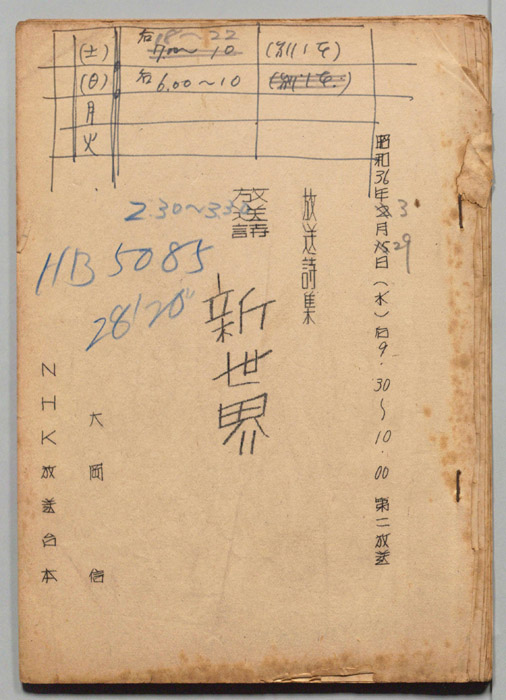 18〜22
(土) 后 7.00〜10
(日) 后 6.00〜10
月
火
昭和36年3月29日(水)后9.30〜10.00 第二放送
放送詩集
放送詩
新世界
2.30〜3.30
HB5085
28'20"
大岡信
NHK放送台本